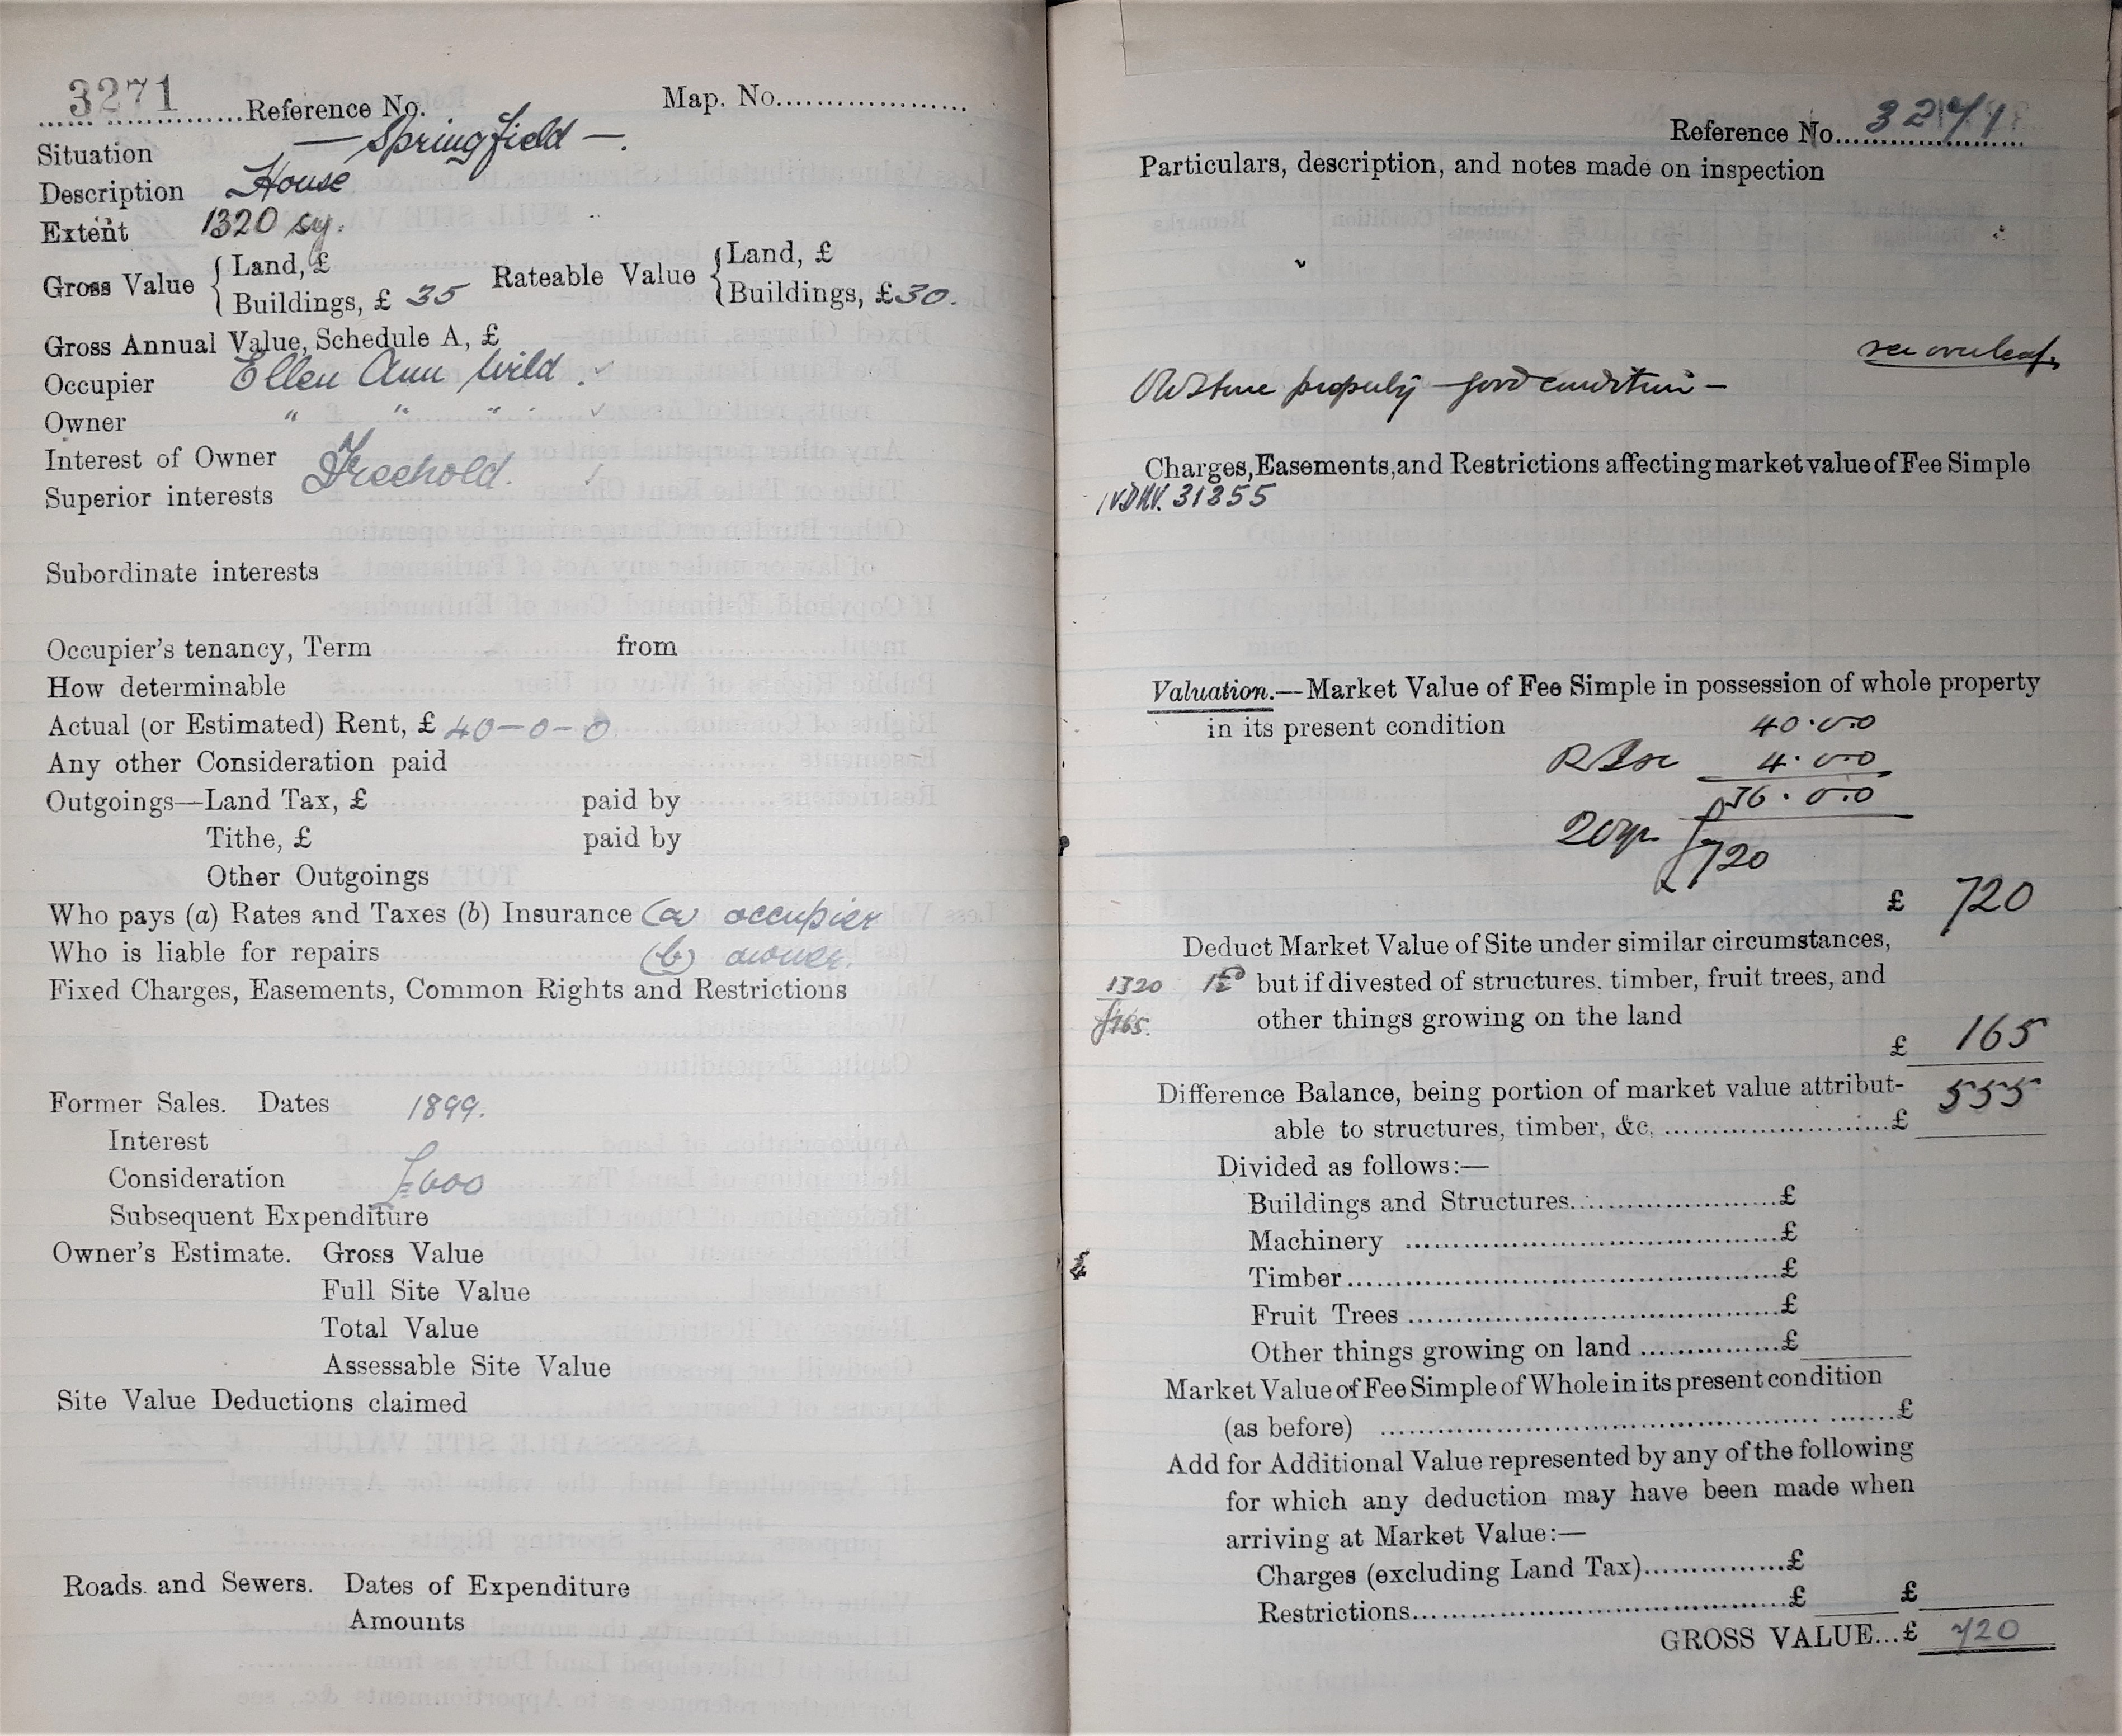 3271 Reference No. Map. No.
Situation — Springfield —.
Description House
Extent 1320 sy.
Gross Value { Land, £ Rateable Value { Land, £
Buildings, £ 35 Buildings, £ 30.
Gross Annual Value, Schedule A, £
Occupier Ellen Ann Wild.
Owner " " " "
Interest of Owner Freehold.
Superior interests
Subordinate interests
Occupier's tenancy, Term from
How determinable
Actual (or Estimated) Rent, £ 40-0-0
Any other Consideration paid
Outgoings—Land Tax, £ paid by
Tithe, £ paid by
Other Outgoings
Who pays (a) Rates and Taxes (b) Insurance (a) occupier
Who is liable for repairs (b) owner.
Fixed Charges, Easements, Common Rights and Restrictions
Former Sales. Dates 1899.
Interest
Consideration £600
Subsequent Expenditure
Owner's Estimate. Gross Value
Full Site Value
Total Value
Assessable Site Value
Site Value Deductions claimed
Roads. and Sewers. Dates of Expenditure
Amounts
Reference No. 3271
Particulars, description, and notes made on inspection
see overleaf.
Old Stone property — good condition —
Charges, Easements, and Restrictions affecting market value of Fee Simple
31355
Valuation.—Market Value of Fee Simple in possession of whole property
in its present condition 40.0.0
4.0.0
36.0.0
20yp £720
£ 720
Deduct Market Value of Site under similar circumstances,
1320 but if divested of structures. timber, fruit trees, and
£165. other things growing on the land
£ 165
Difference Balance, being portion of market value attribut- 555
able to structures, timber, &c. £
Divided as follows:—
Buildings and Structures £
Machinery £
Timber £
Fruit Trees £
Other things growing on land £
Market Value of Fee Simple of Whole in its present condition
(as before) £
Add for Additional Value represented by any of the following
for which any deduction may have been made when
arriving at Market Value:—
Charges (excluding Land Tax) £
Restrictions £ £
GROSS VALUE...£ 720